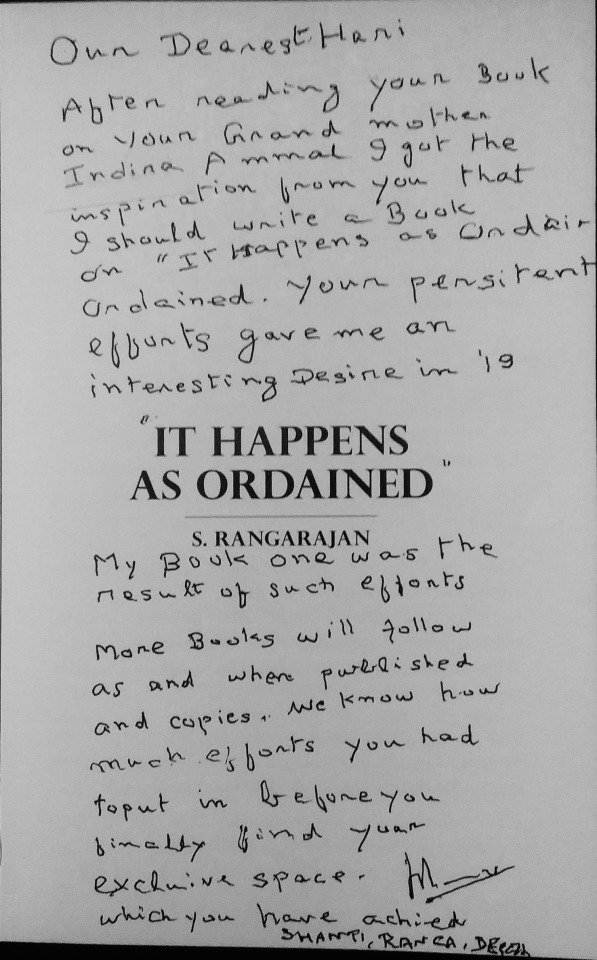 Our Dearest Hari
After reading your Book
on your Grand mother
Indira Ammal I got the
inspiration from you that
I should write a Book
on "It Happens as Ordair
Ordained. Your persitent
efforts gave me an
interesting Desire in '19
"IT HAPPENS
AS ORDAINED"
S. RANGARAJAN
My Book one was the
result of such efforts
More Books will follow
as and where published
and copies. We know how
much efforts you had
toput in before you
finally find your
exclusive space.
which you have achied
SHANTI, RANGA,